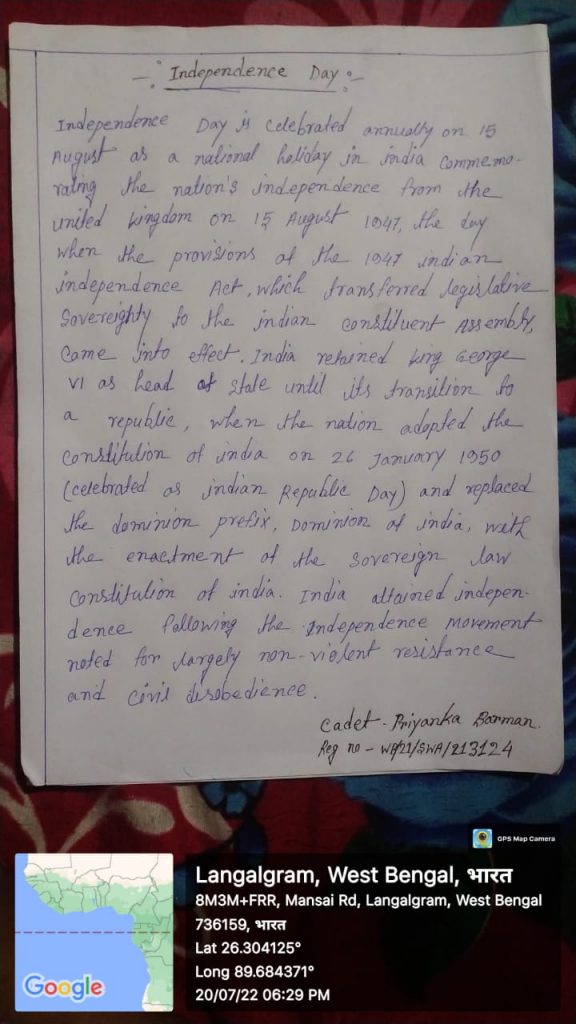 -: Independence Day :-
Independence Day is celebrated annually on 15
August as a national holiday in india commemo-
rating the nation's independence from the
united kingdom on 15 August 1947, the day
when the provisions of the 1947 indian
independence Act, which transferred legislative
Sovereighty to the indian constituent Assembly,
Came into effect. India retained king George
VI as head of state until its transition to
a republic, when the nation adopted the
Constitution of india on 26 January 1950
(celebrated as indian Republic Day) and replaced
the dominion prefix, Dominion of india, with
the enactment of the sovereign law
Constitution of india. India attained indepen-
dence following the independence movement
noted for largely non-violent resistance
and civil disobedience.
Cadet - Priyanka Barman.
Reg no - WB/21/SWA/213124
GPS Map Camera
Langalgram, West Bengal, भारत
8M3M+FRR, Mansai Rd, Langalgram, West Bengal
736159, भारत
Lat 26.304125°
Long 89.684371°
20/07/22 06:29 PM
Google